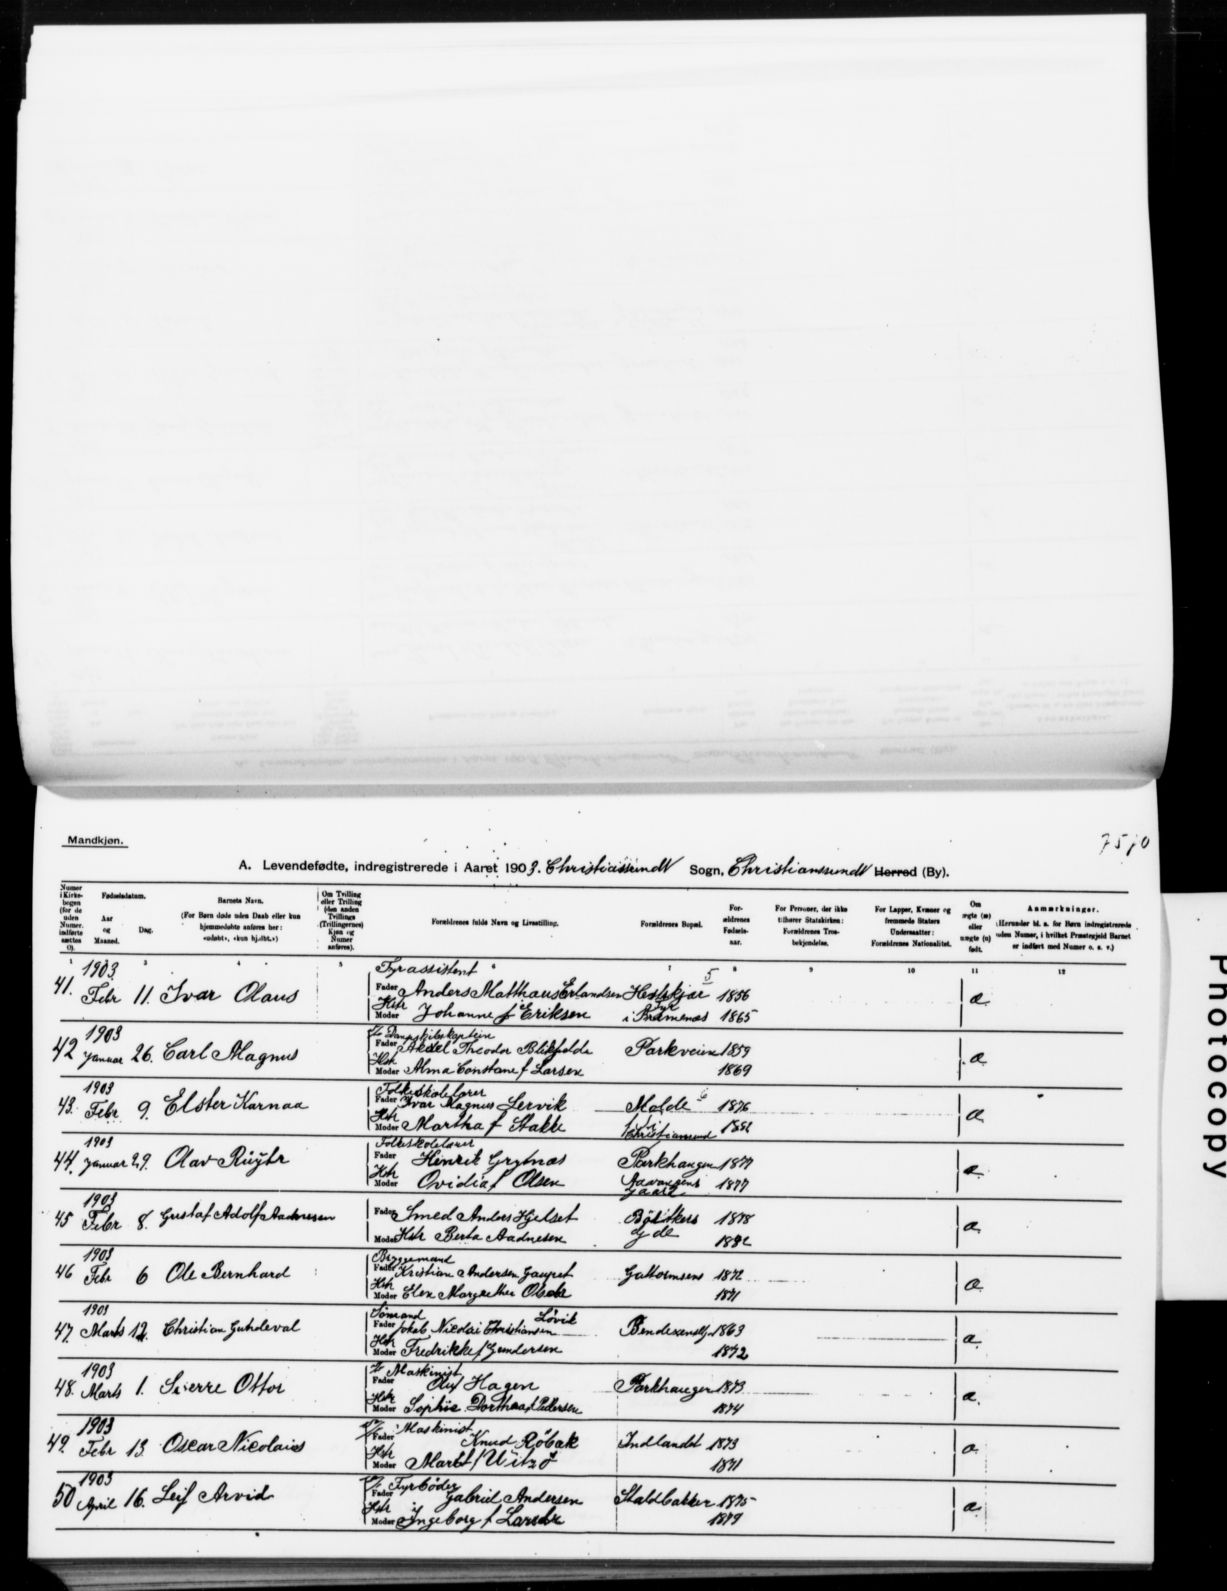 Mandkjøn.
A. Levendefødte, indregistrerede i Aaret 1903. Christiansund Sogn, Christianssund Herred (By).
Numer i Kirkebogen (for de uden Numer. indførte sættes 0).
Fødselsdatum.
Aar og Maaned.
Dag.
Barnets Navn.
(For Børn døde uden Daab eller kun hjemmedøbte anføres her: «udøbt», «kun hj.dbt.»)
Om Tvilling eller Trilling (den anden Tvillings (Trillingernes) Kjøn og Numer anføres).
Forældrenes fulde Navn og Livsstilling.
Forældrenes Bopæl.
Forældrenes Fødselsaar.
For Personer, der ikke tilhører Statskirken: Forældrenes Trosbekjendelse.
For Lapper, Kvæner og fremmede Staters Undersaatter: Forældrenes Nationalitet.
Om ægte (æ) eller uægte (u) født.
Anmærkninger.
(Herunder bl. a. for Børn indregistrerede uden Numer, i hvilket Præstegjeld Barnet er indført med Numer o. s. v.)
1 3 4 5 7 8 9 10 11 12
1903 Fyrassistent 5
41. Febr 11. Ivar Olaus Fader Anders Matthæus Erlandsen Hestskjær 1856 æ
Hstr Moder Johanne f Eriksen Fyr i Bremsnæs 1865
1903 Dampskibskaptein
42 Januar 26. Carl Magnus Fader Theodor Parkveien 1859 æ
Hstr Moder Alma Constanse f Larsen 1869
1903 Folkeskolelærer
43. Febr 9. Elster Karnaa Fader Ivar Magnus Lervik Molde 6 1876 æ
Hstr Moder Martha f Stakke Christiansund
1903 Folkeskolelærer
44. Januar 29. Olav Fader Henrik Grytnæs Parkhaugen 1877 æ
Hstr Moder Ovidia f Olsen gaard 1877
1903
45 Febr 8. Gustaf Adolf Aadnesen Fader Smed Anders Hjelset 1878 æ
Moder Hstr Berta Aadnesen
1903 Bryggemand
46 Febr 6 Ole Bernhard Fader Kristian Andersen 1872 æ
Hstr Moder Elen Margrethe 1871
1903 Sømand Løvik
47. Marts 12. Christian Fader Jakob Nicolai Christiansen 1863 æ
Hstr Moder Fredrikke f Gundersen 1872
1903 Maskinist
48. Marts 1. Sverre Ottor Fader Oluf Hagen Parkhaugen 1873 æ
Hstr Moder Sophie Dorthea f Pedersen 1874
1903 Maskinist
49. Febr 13 Oscar Nicolai Fader Knud Røbæk Indlandet 1873 æ
Hstr Moder Marit f 1871
1903 Fyrbøder
50 April 16. Leif Arvid Fader Gabriel Andersen Staldbakken 1875 æ
Hstr Moder Ingeborg f 1879
Photocopy